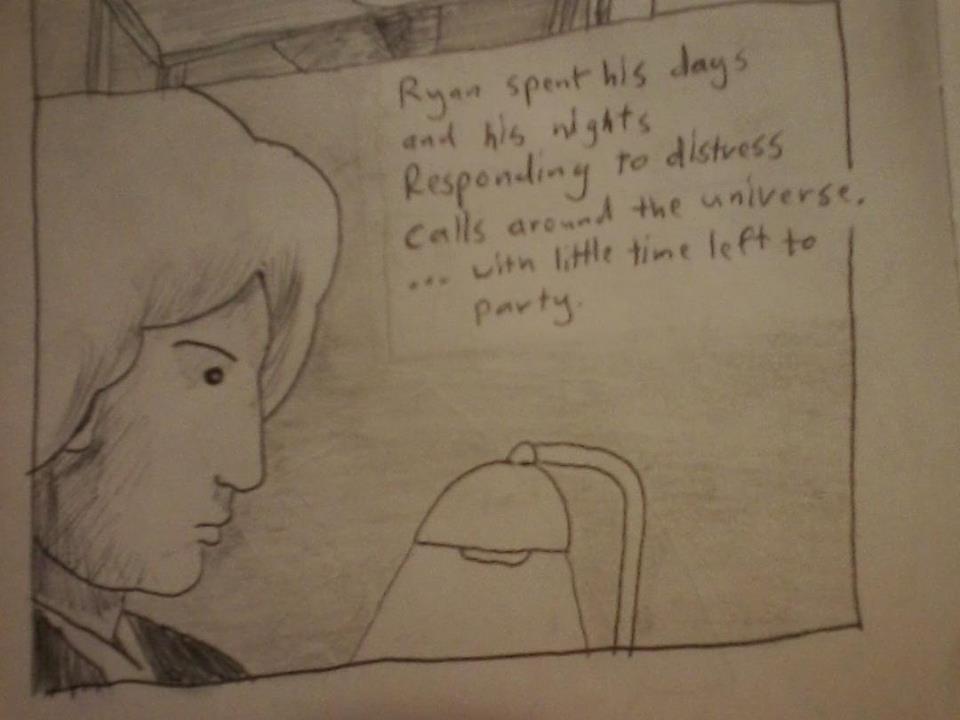 Ryan spent his days
and his nights
Responding to distress
calls around the universe.
... with little time left to
party.